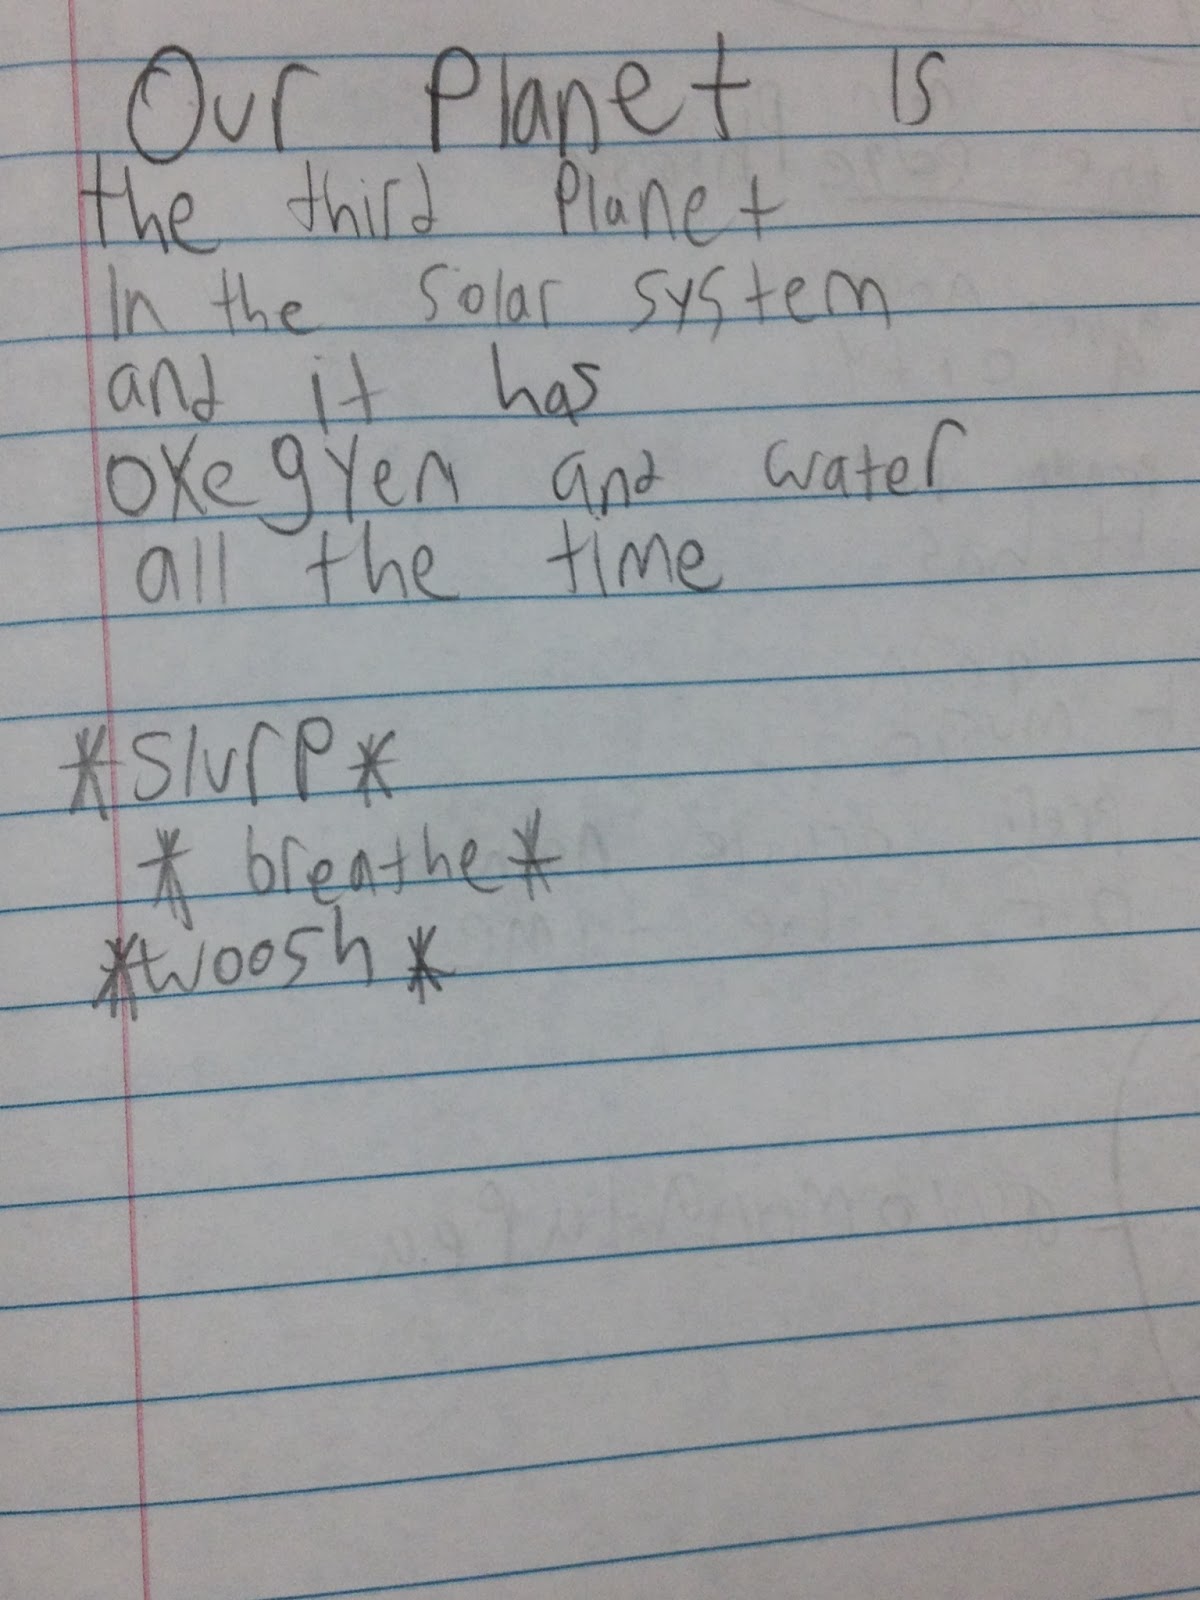 Our Planet is
the third Planet
In the solar system
and it has
oxegyen and water
all the time
*slurp*
* breathe*
*woosh*